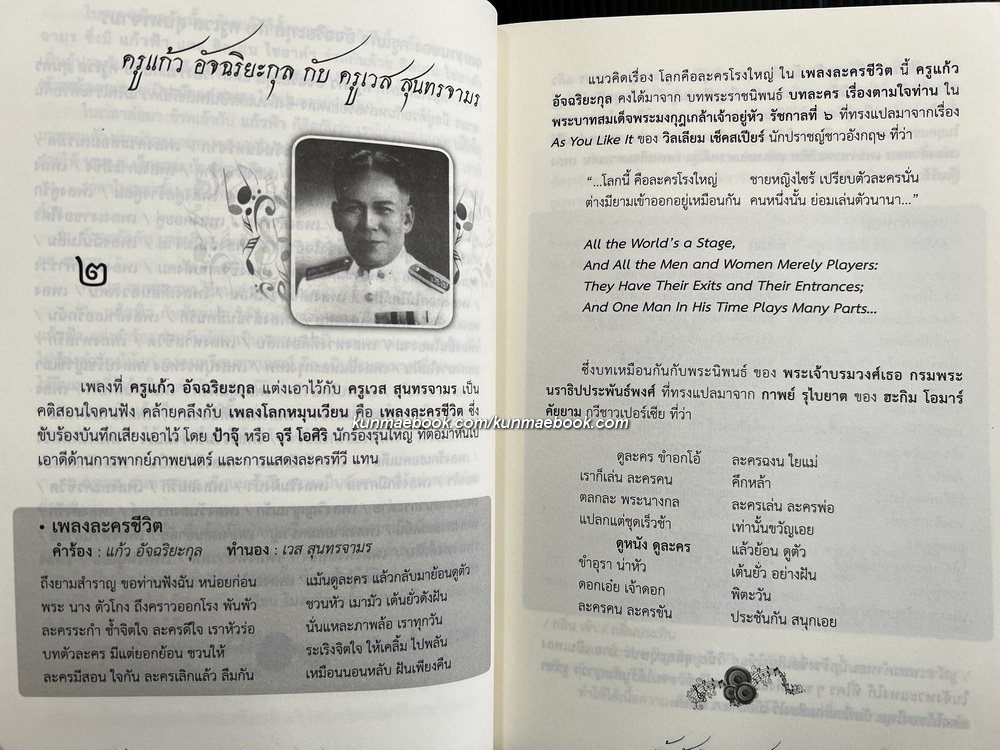 ครูแก้ว อัจฉริยะกุล กับ ครูเวส สุนทรจามร
๒
เพลงที่ ครูแก้ว อัจฉริยะกุล แต่งเอาไว้กับ ครูเวส สุนทรจามร เป็น
คติสอนใจคนฟัง คล้ายคลึงกับ เพลงโลกหมุนเวียน คือ เพลงละครชีวิต ซึ่ง
ขับร้องบันทึกเสียงเอาไว้ โดย ป้าจุ๊ หรือ จุรี โอศิริ นักร้องรุ่นใหญ่ ที่ต่อมาหันไป
เอาดีด้านการพากย์ภาพยนตร์ และการแสดงละครทีวี แทน
• เพลงละครชีวิต
คำร้อง : แก้ว อัจฉริยะกุล ทำนอง : เวส สุนทรจามร
ถึงยามสำราญ ขอท่านฟังฉัน หน่อยก่อน แม้นดูละคร แล้วกลับมาย้อนดูตัว
พระ นาง ตัวโกง ถึงคราวออกโรง พันพัว ชวนหัว เมามัว เต้นยั่วดังฝัน
ละครระกำ ช้ำจิตใจ ละครดีใจ เราหัวร่อ นั่นแหละภาพล้อ เราทุกวัน
บทตัวละคร มีแต่ยอกย้อน ชวนให้ ระเริงจิตใจ ให้เคลิ้ม ไปพลัน
ละครมีสอน ใจกัน ละครเลิกแล้ว ลืมกัน เหมือนนอนหลับ ฝันเพียงคืน
แนวคิดเรื่อง โลกคือละครโรงใหญ่ ใน เพลงละครชีวิต นี้ ครูแก้ว
อัจฉริยะกุล คงได้มาจาก บทพระราชนิพนธ์ บทละคร เรื่องตามใจท่าน ใน
พระบาทสมเด็จพระมงกุฎเกล้าเจ้าอยู่หัว รัชกาลที่ ๖ ที่ทรงแปลมาจากเรื่อง
As You Like It ของ วิลเลียม เช็คสเปียร์ นักปราชญ์ชาวอังกฤษ ที่ว่า
“...โลกนี้ คือละครโรงใหญ่ ชายหญิงไซร้ เปรียบตัวละครนั่น
ต่างมียามเข้าออกอยู่เหมือนกัน คนหนึ่งนั้น ย่อมเล่นตัวนานา...”
All the World's a Stage,
And All the Men and Women Merely Players:
They Have Their Exits and Their Entrances;
And One Man In His Time Plays Many Parts...
ซึ่งบทเหมือนกันกับพระนิพนธ์ ของ พระเจ้าบรมวงศ์เธอ กรมพระ
นราธิปประพันธ์พงศ์ ที่ทรงแปลมาจาก กาพย์ รุไบยาต ของ ฮะกิม โอมาร์
คัยยาม กวีชาวเปอร์เซีย ที่ว่า
kunmaebook.com/kunmaebook.com
ดูละคร ขำอกโอ้ ละครฉงน ใยแม่
เราก็เล่น ละครคน คึกหล้า
ตลกละ พระนางกล ละครเล่น ละครพ่อ
แปลกแต่ชุดเร็วช้า เท่านั้นขวัญเอย
ดูหนัง ดูละคร แล้วย้อน ดูตัว
ขำอุรา น่าหัว เต้นยั่ว อย่างฝัน
ดอกเอ๋ย เจ้าดอก พิตะวัน
ละครคน ละครขัน ประชันกัน สนุกเอย